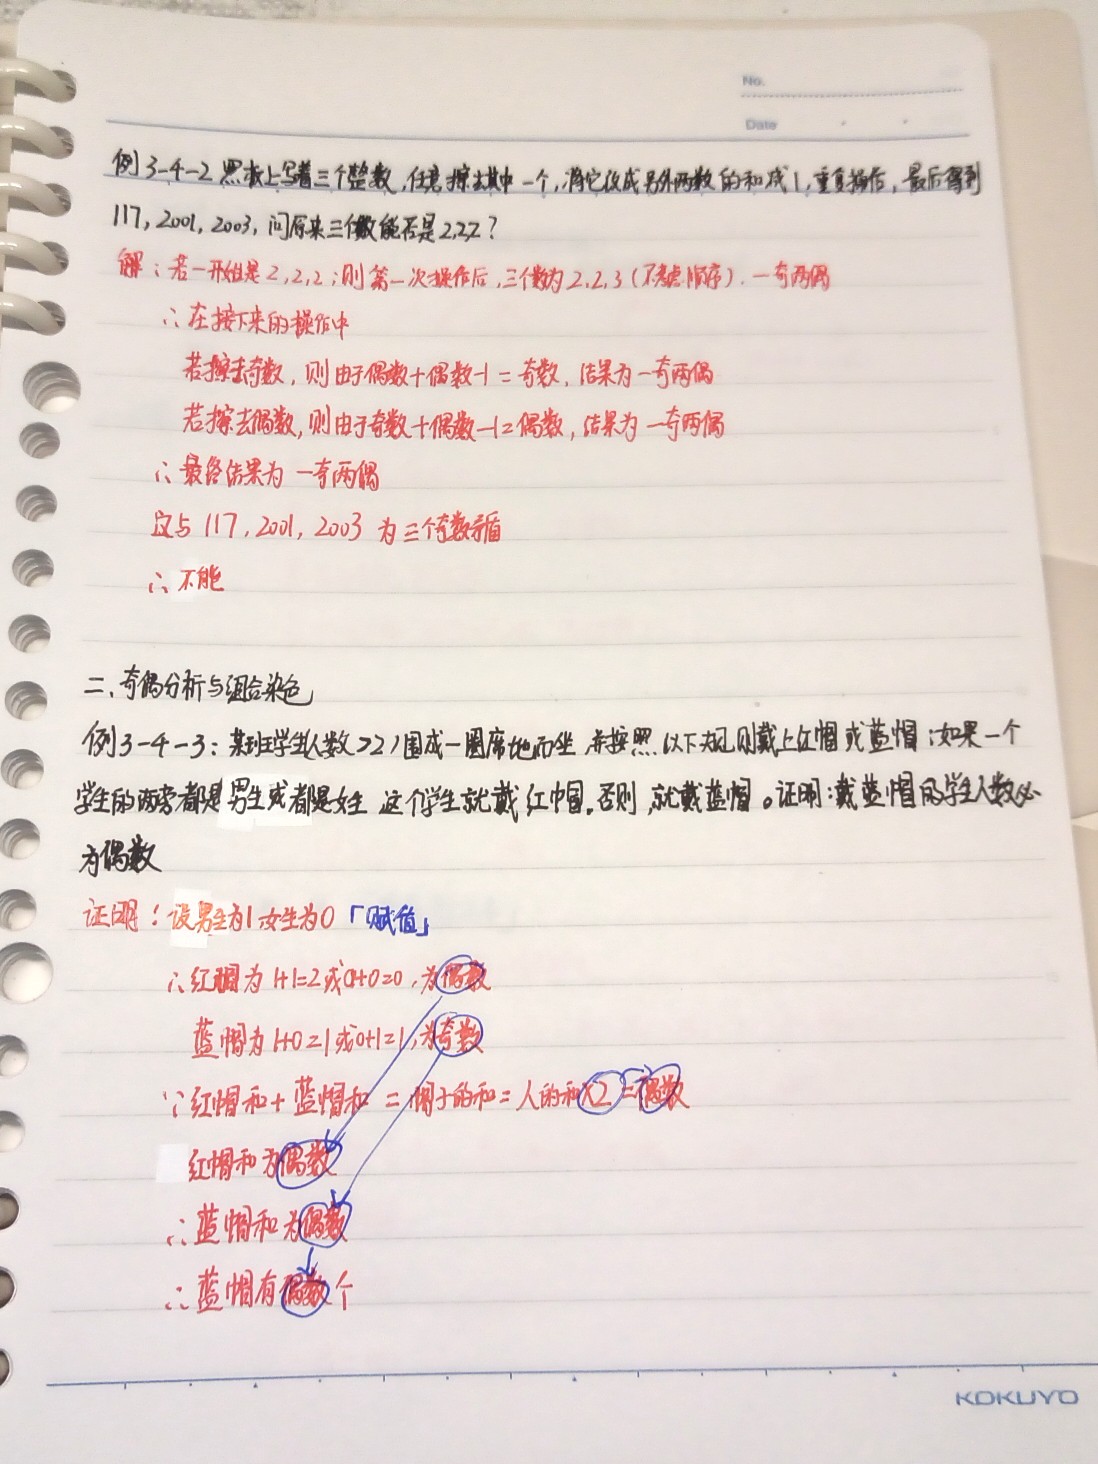 No.
Date
例3-4-2 黑板上写着三个整数,任意擦去其中一个,将它改成另外两数的和减1,重复操作,最后得到
117,2001,2003,问原来三个数能否是2,2,2?
解:若一开始是2,2,2;则第一次操作后,三个数为2,2,3(不考虑顺序).一奇两偶
∴在接下来的操作中
若擦去奇数,则由于偶数+偶数-1=奇数,结果为一奇两偶
若擦去偶数,则由于奇数+偶数-1=偶数,结果为一奇两偶
∴最终结果为一奇两偶
这与117,2001,2003为三个奇数矛盾
∴不能
二、奇偶分析与组合染色
例3-4-3:某班学生(人数>2)围成一圈席地而坐 并按照以下规则戴上红帽或蓝帽:如果一个
学生的两旁都是男生或都是女生 这个学生就戴红帽.否则,就戴蓝帽。证明:戴蓝帽的学生人数必
为偶数
证明:设男生为1,女生为0「赋值」
∴红帽为1+1=2或0+0=0,为偶数
蓝帽为1+0=1或0+1=1,为奇数
∵红帽和+蓝帽和=帽子的和=人的和×2=偶数
红帽和为偶数
∴蓝帽和为偶数
∴蓝帽有偶数个
KOKUYO